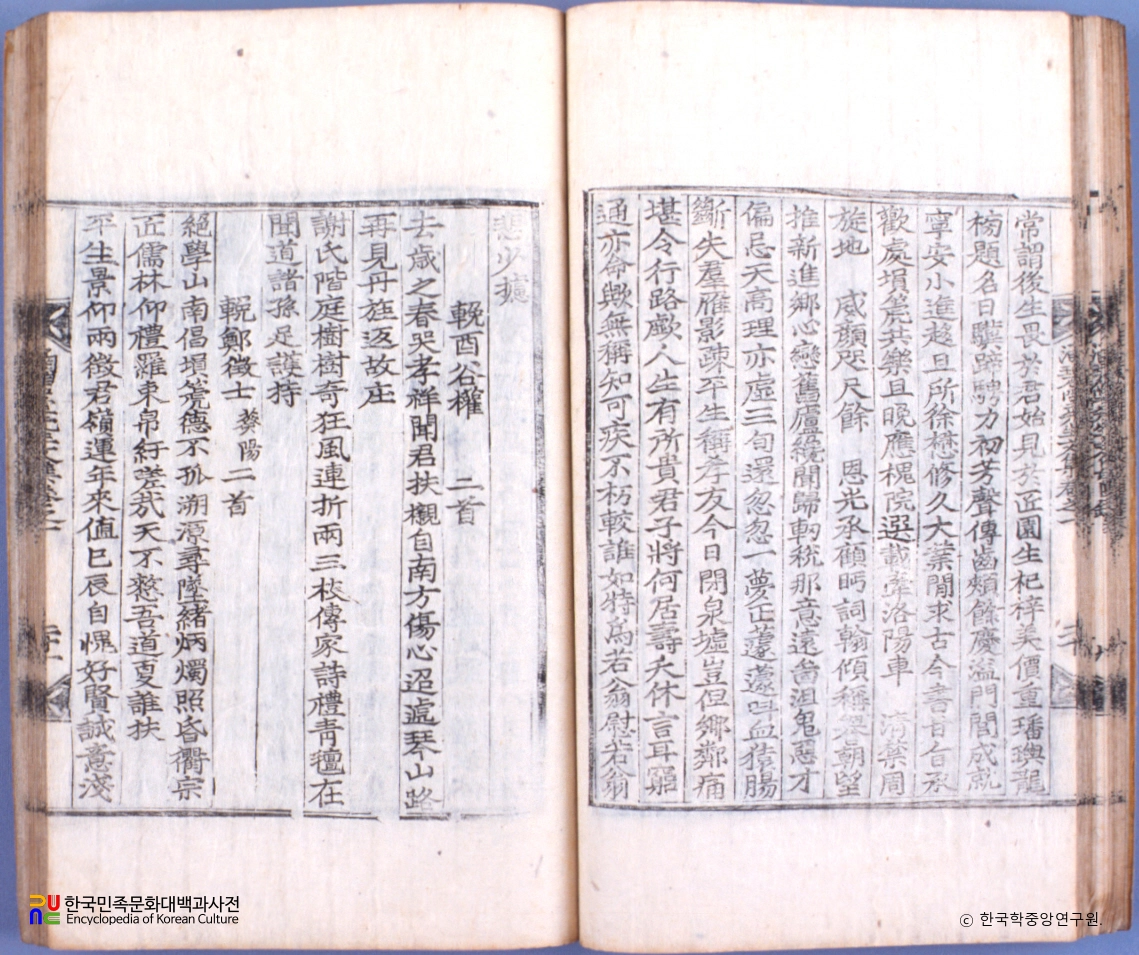 常謂後生畏於君始見於匠園生杞梓美價重璠璵龍
榜題名日驥蹄騁力初芳聲傳齒頰餘慶溢門閭成就
寧安小進趍且所徐懋修久大業閒求古今書昔台承
歡處塤篪共樂且晩應槐院選載鞏洛陽車 淸禁周
旋地 威顔咫尺餘 恩光承顧眄詞翰傾稱 朝望
推新進鄕心戀舊廬纔聞歸軔稅那意遠 沮鬼惡才
偏忌天高理亦虛三旬還忽忽一夢正蘧蘧 血 腸
斷失羣雁影疎平生稱孝友今日閉泉墟豈但鄕鄰痛
堪令行路歔人生有所貴君子將何居壽夭休言耳窮
通亦命歟無稱知可疾不朽較誰如特爲若翁慰若翁
悲少攄
輓酉谷權 二首
去歲之春哭孝祥聞君扶櫬自南方傷心迢遞琴山路
再見丹旌返故庄
謝氏階庭樹樹奇狂風連折兩三枝傳家詩禮靑氊在
聞道諸孫足護持
輓鄭徵士 葵陽 二首
絕學山南倡塤篪德不孤溯源尋墜緖炳燭照昏衢宗
匠儒林仰禮羅束帛紆嗟哉天不憗吾道更誰扶
平生景仰兩徵君嶺運年來値巳辰自愧好賢誠意淺
한국민족문화대백과사전
Encyclopedia of Korean Culture
© 한국학중앙연구원.